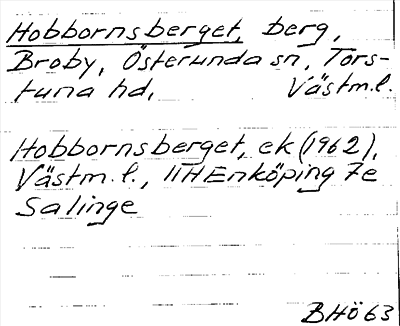 Hobbornsberget, berg,
Broby, Österunda sn, Tors-
tuna hd, Västm.l.
Hobbornsberget, ek (1962),
Västm.l., 11H Enköping 7e
Salinge
BHö 63